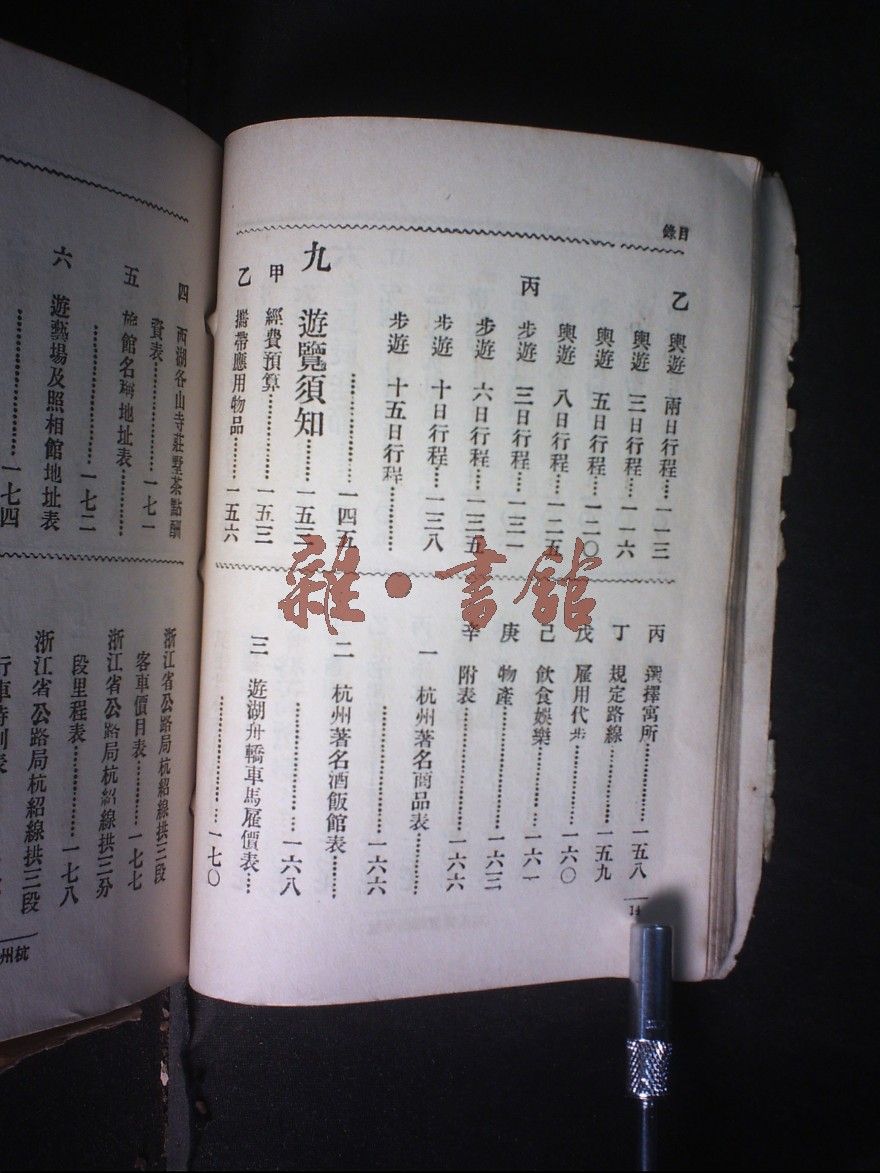 目錄
乙 輿遊 兩日行程………一一三
輿遊 三日行程………一一六
輿遊 五日行程………一二〇
輿遊 八日行程………一二五
丙 步遊 三日行程………一三一
步遊 六日行程………一三五
步遊 十日行程………一三八
步遊 十五日行程………
………一四五
九 遊覽須知………一五三
甲 經費預算………一五三
乙 攜帶應用物品………一五六
丙 選擇寓所………一五八
丁 規定路線………一五九
戊 雇用代步………一六〇
己 飲食娛樂………一六一
庚 物產………一六三
辛 附表………一六六
一 杭州著名商品表………
………一六六
二 杭州著名酒飯館表………
………一六八
三 遊湖舟轎車馬雇價表…
………一七〇
14
雜·書館
四 西湖各山寺莊墅茶點酬
資表………一七一
五 旅館名稱地址表………
………一七二
六 遊藝場及照相館地址表
………一七四
浙江省公路局杭紹線拱三段
客車價目表………一七七
浙江省公路局杭紹線拱三分
段里程表………一七八
浙江省公路局杭紹線拱三段
行車時刻表
杭州